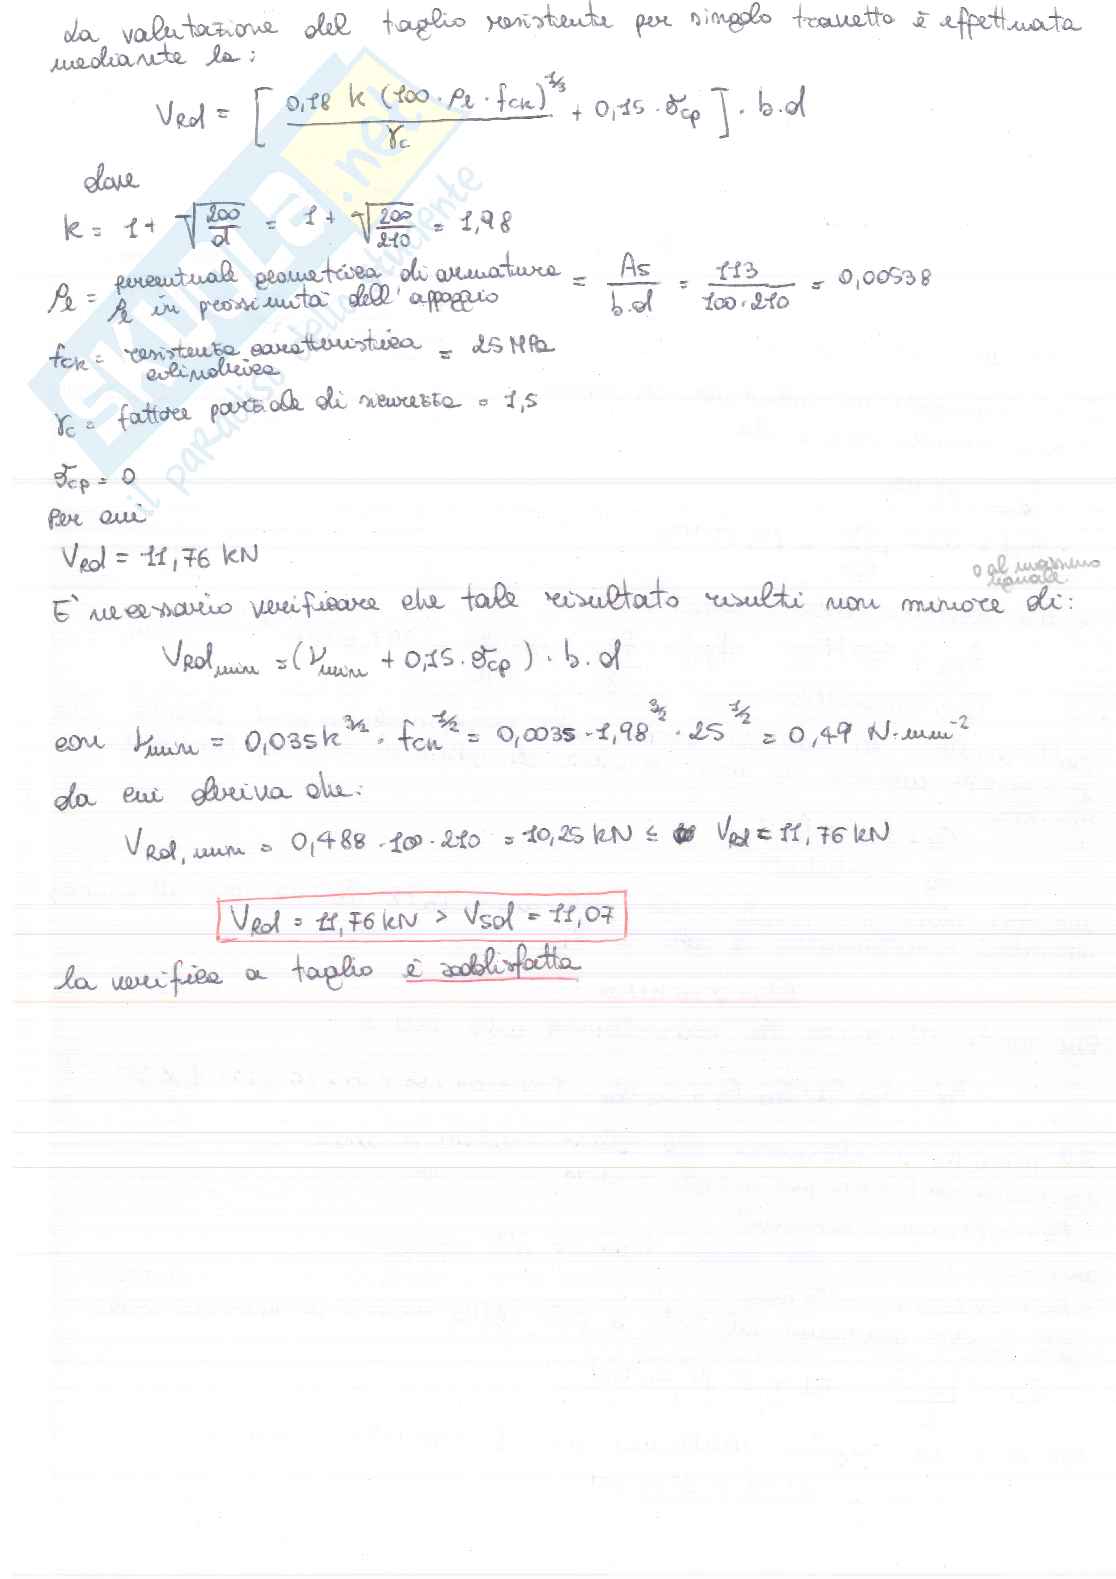 La valutazione del taglio resistente per singolo travetto è effettuata
mediante la:
VRd = [ 0,18 k (100 · ρl · fck)^1/3 / γc + 0,15 · σcp ] · b · d
dove
k = 1 + √(200/d) = 1 + √(200/210) = 1,98
ρl = percentuale geometrica di armatura
ρl in prossimità dell'appoggio = As / b·d = 113 / 100·210 = 0,00538
fck = resistenza caratteristica
cilindrica = 25 MPa
γc = fattore parziale di sicurezza = 1,5
σcp = 0
Per cui
VRd = 11,76 kN
o al massimo
uguale
E' necessario verificare che tale risultato risulti non minore di:
VRdmin = (νmin + 0,15 · σcp) · b · d
con νmin = 0,035 k^3/2 · fck^1/2 = 0,0035 · 1,98^3/2 · 25^1/2 = 0,49 N·mm^-2
da cui deriva che:
VRd,min = 0,488 · 100 · 210 = 10,25 kN ≤ VRd = 11,76 kN
VRd = 11,76 kN > VSd = 11,07
la verifica a taglio è soddisfatta
SKUOLA.net
il paradiso dello studente